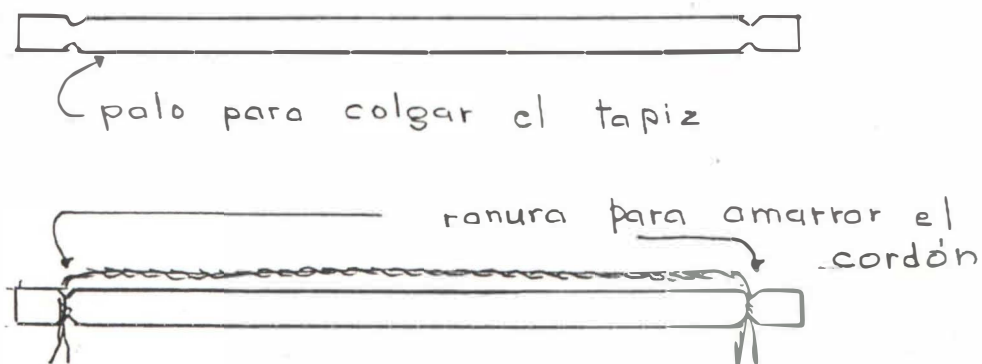 palo para colgar el tapiz
ranura para amarrar el
cordón